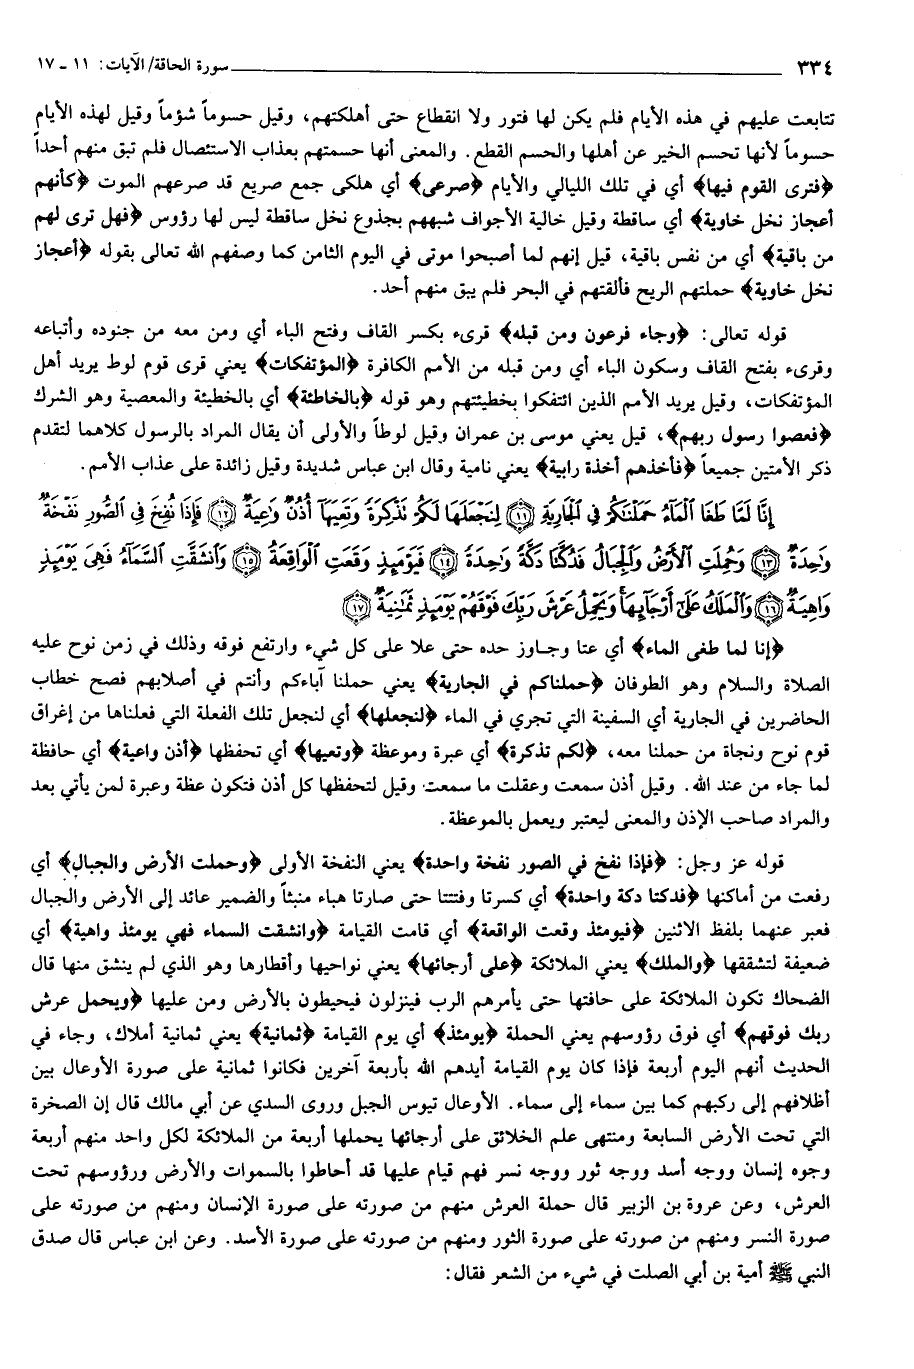 ٣٣٤ سورة الحاقة/ الآيات: ١١ ـ ١٧
تتابعت عليهم في هذه الأيام فلم يكن لها فتور ولا انقطاع حتى أهلكتهم، وقيل حسوماً شؤماً وقيل لهذه الأيام
حسوماً لأنها تحسم الخير عن أهلها والحسم القطع. والمعنى أنها حسمتهم بعذاب الاستئصال فلم تبق منهم أحداً
﴿فترى القوم فيها﴾ أي في تلك الليالي والأيام ﴿صرعى﴾ أي هلكى جمع صريع قد صرعهم الموت ﴿كأنهم
أعجاز نخل خاوية﴾ أي ساقطة وقيل خالية الأجواف شبههم بجذوع نخل ساقطة ليس لها رؤوس ﴿فهل ترى لهم
من باقية﴾ أي من نفس باقية، قيل إنهم لما أصبحوا موتى في اليوم الثامن كما وصفهم الله تعالى بقوله ﴿أعجاز
نخل خاوية﴾ حملتهم الريح فألقتهم في البحر فلم يبق منهم أحد.
قوله تعالى: ﴿وجاء فرعون ومن قبله﴾ قرىء بكسر القاف وفتح الباء أي ومن معه من جنوده وأتباعه
وقرىء بفتح القاف وسكون الباء أي ومن قبله من الأمم الكافرة ﴿المؤتفكات﴾ يعني قرى قوم لوط يريد أهل
المؤتفكات، وقيل يريد الأمم الذين ائتفكوا بخطيئتهم وهو قوله ﴿بالخاطئة﴾ أي بالخطيئة والمعصية وهو الشرك
﴿فعصوا رسول ربهم﴾، قيل يعني موسى بن عمران وقيل لوطاً والأولى أن يقال المراد بالرسول كلاهما لتقدم
ذكر الأمتين جميعاً ﴿فأخذهم أخذة رابية﴾ يعني نامية وقال ابن عباس شديدة وقيل زائدة على عذاب الأمم.
إِنَّا لَمَّا طَغَا ٱلْمَآءُ حَمَلْنَٰكُمْ فِى ٱلْجَارِيَةِ ﴿١١﴾ لِنَجْعَلَهَا لَكُمْ تَذْكِرَةً وَتَعِيَهَآ أُذُنٌ وَٰعِيَةٌ ﴿١٢﴾ فَإِذَا نُفِخَ فِى ٱلصُّورِ نَفْخَةٌ
وَٰحِدَةٌ ﴿١٣﴾ وَحُمِلَتِ ٱلْأَرْضُ وَٱلْجِبَالُ فَدُكَّتَا دَكَّةً وَٰحِدَةً ﴿١٤﴾ فَيَوْمَئِذٍ وَقَعَتِ ٱلْوَاقِعَةُ ﴿١٥﴾ وَٱنشَقَّتِ ٱلسَّمَآءُ فَهِىَ يَوْمَئِذٍ
وَاهِيَةٌ ﴿١٦﴾ وَٱلْمَلَكُ عَلَىٰٓ أَرْجَآئِهَا وَيَحْمِلُ عَرْشَ رَبِّكَ فَوْقَهُمْ يَوْمَئِذٍ ثَمَٰنِيَةٌ ﴿١٧﴾
﴿إنا لما طغى الماء﴾ أي عتا وجاوز حده حتى علا على كل شيء وارتفع فوقه وذلك في زمن نوح عليه
الصلاة والسلام وهو الطوفان ﴿حملناكم في الجارية﴾ يعني حملنا آباءكم وأنتم في أصلابهم فصح خطاب
الحاضرين في الجارية أي السفينة التي تجري في الماء ﴿لنجعلها﴾ أي لنجعل تلك الفعلة التي فعلناها من إغراق
قوم نوح ونجاة من حملنا معه، ﴿لكم تذكرة﴾ أي عبرة وموعظة ﴿وتعيها﴾ أي تحفظها ﴿أذن واعية﴾ أي حافظة
لما جاء من عند الله. وقيل أذن سمعت وعقلت ما سمعت وقيل لتحفظها كل أذن فتكون عظة وعبرة لمن يأتي بعد
والمراد صاحب الإذن والمعنى ليعتبر ويعمل بالموعظة.
قوله عز وجل: ﴿فإذا نفخ في الصور نفخة واحدة﴾ يعني النفخة الأولى ﴿وحملت الأرض والجبال﴾ أي
رفعت من أماكنها ﴿فدكتا دكة واحدة﴾ أي كسرتا وفتتتا حتى صارتا هباء منبثاً والضمير عائد إلى الأرض والجبال
فعبر عنهما بلفظ الاثنين ﴿فيومئذ وقعت الواقعة﴾ أي قامت القيامة ﴿وانشقت السماء فهي يومئذ واهية﴾ أي
ضعيفة لتشققها ﴿والملك﴾ يعني الملائكة ﴿على أرجائها﴾ يعني نواحيها وأقطارها وهو الذي لم ينشق منها قال
الضحاك تكون الملائكة على حافتها حتى يأمرهم الرب فينزلون فيحيطون بالأرض ومن عليها ﴿ويحمل عرش
ربك فوقهم﴾ أي فوق رؤوسهم يعني الحملة ﴿يومئذ﴾ أي يوم القيامة ﴿ثمانية﴾ يعني ثمانية أملاك، وجاء في
الحديث أنهم اليوم أربعة فإذا كان يوم القيامة أيدهم الله بأربعة آخرين فكانوا ثمانية على صورة الأوعال بين
أظلافهم إلى ركبهم كما بين سماء إلى سماء. الأوعال تيوس الجبل وروى السدي عن أبي مالك قال إن الصخرة
التي تحت الأرض السابعة ومنتهى علم الخلائق على أرجائها يحملها أربعة من الملائكة لكل واحد منهم أربعة
وجوه إنسان ووجه أسد ووجه ثور ووجه نسر فهم قيام عليها قد أحاطوا بالسموات والأرض ورؤوسهم تحت
العرش، وعن عروة بن الزبير قال حملة العرش منهم من صورته على صورة الإنسان ومنهم من صورته على
صورة النسر ومنهم من صورته على صورة الثور ومنهم من صورته على صورة الأسد. وعن ابن عباس قال صدق
النبي ﷺ أمية بن أبي الصلت في شيء من الشعر فقال: